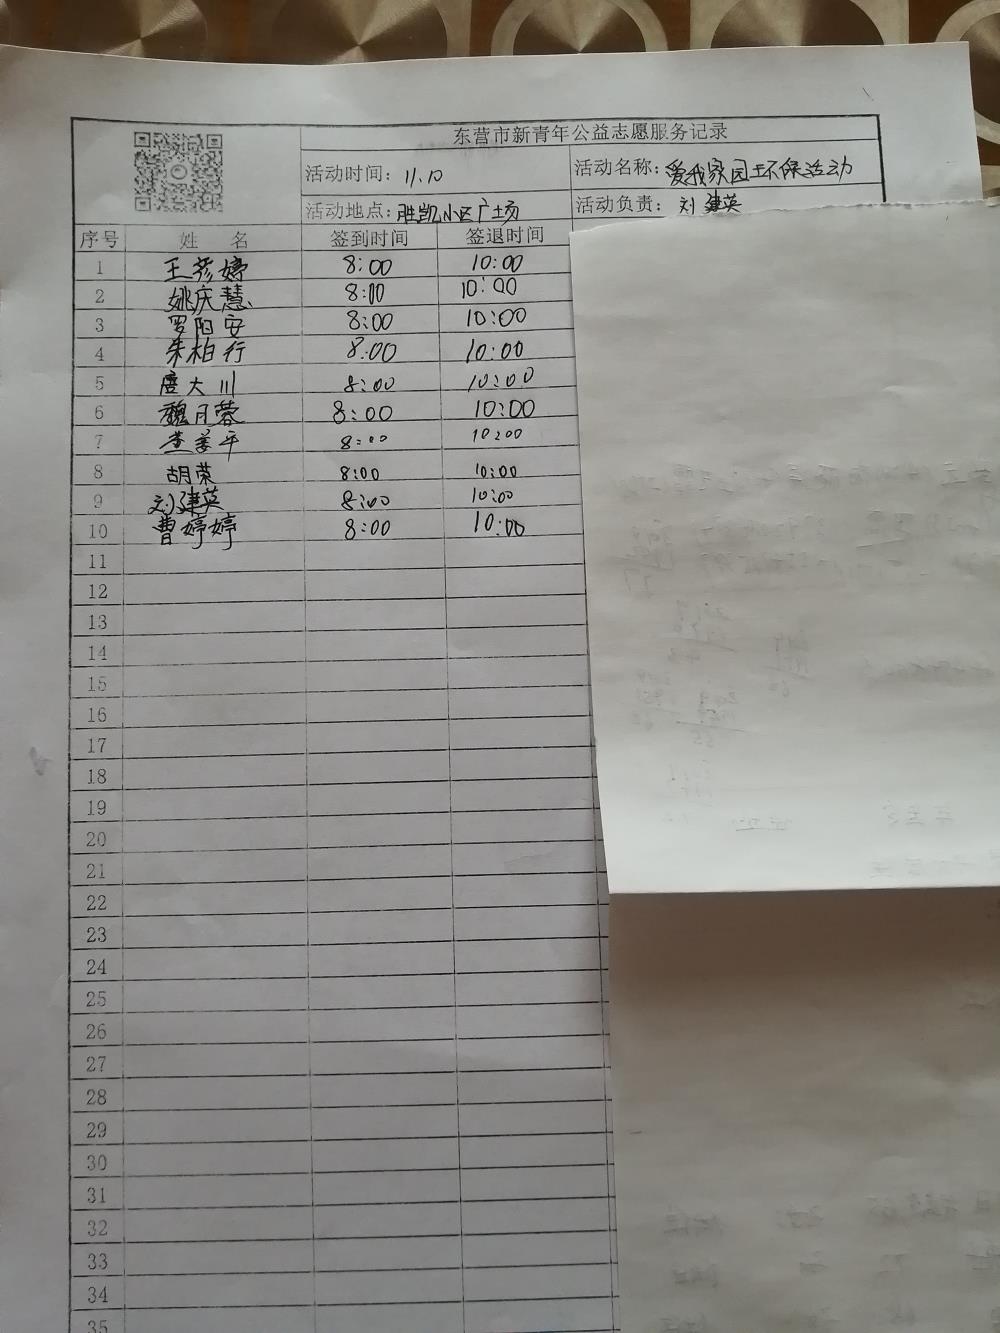 东营市新青年公益志愿服务记录
活动时间: 11.10 活动名称: 爱我家园环保活动
活动地点: 胜凯小区广场 活动负责: 刘建英
序号 姓 名 签到时间 签退时间
1 王彦婷 8:00 10:00
2 姚庆慧 8:00 10:00
3 罗阳安 8:00 10:00
4 朱柏行 8:00 10:00
5 唐大川 8:00 10:00
6 魏月蓉 8:00 10:00
7 8:00 10:00
8 胡荣 8:00 10:00
9 刘建英 8:00 10:00
10 曹婷婷 8:00 10:00
11
12
13
14
15
16
17
18
19
20
21
22
23
24
25
26
27
28
29
30
31
32
33
34
35